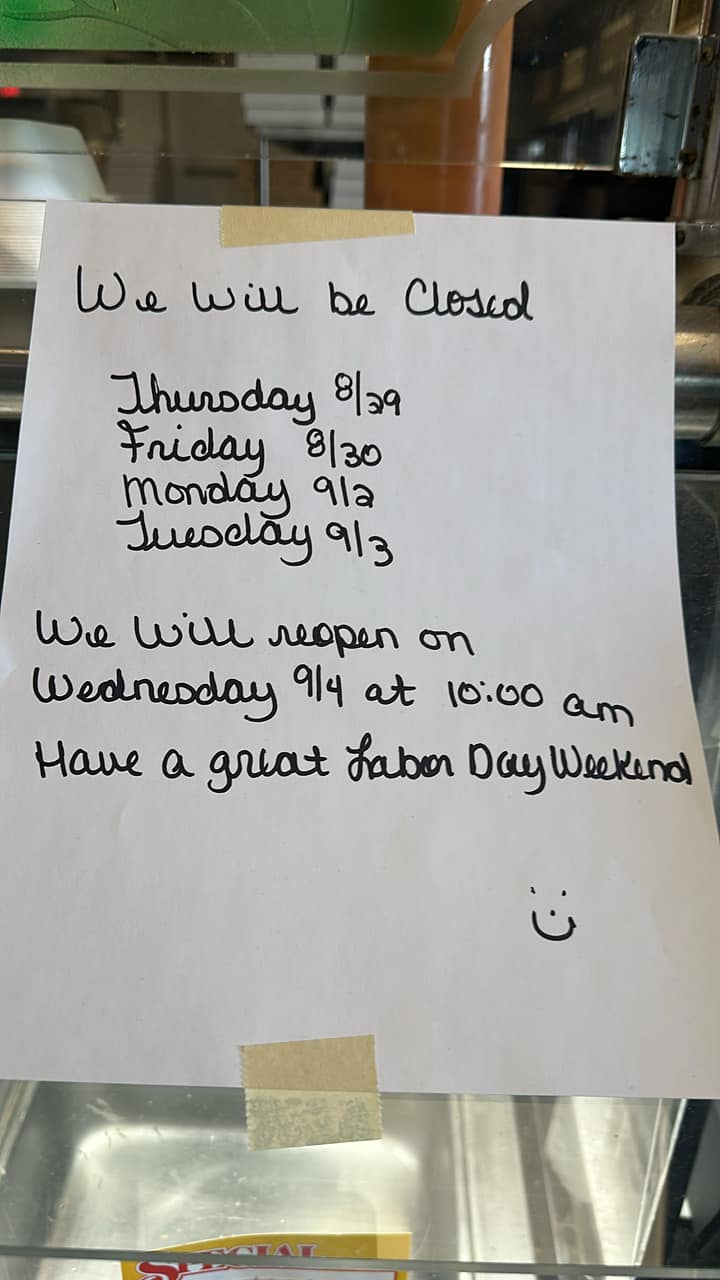 We Will be Closed
Thursday 8/29
Friday 8/30
Monday 9/2
Tuesday 9/3
We Will reopen on
Wednesday 9/4 at 10:00 am
Have a great Labor Day Weekend
SPECIAL